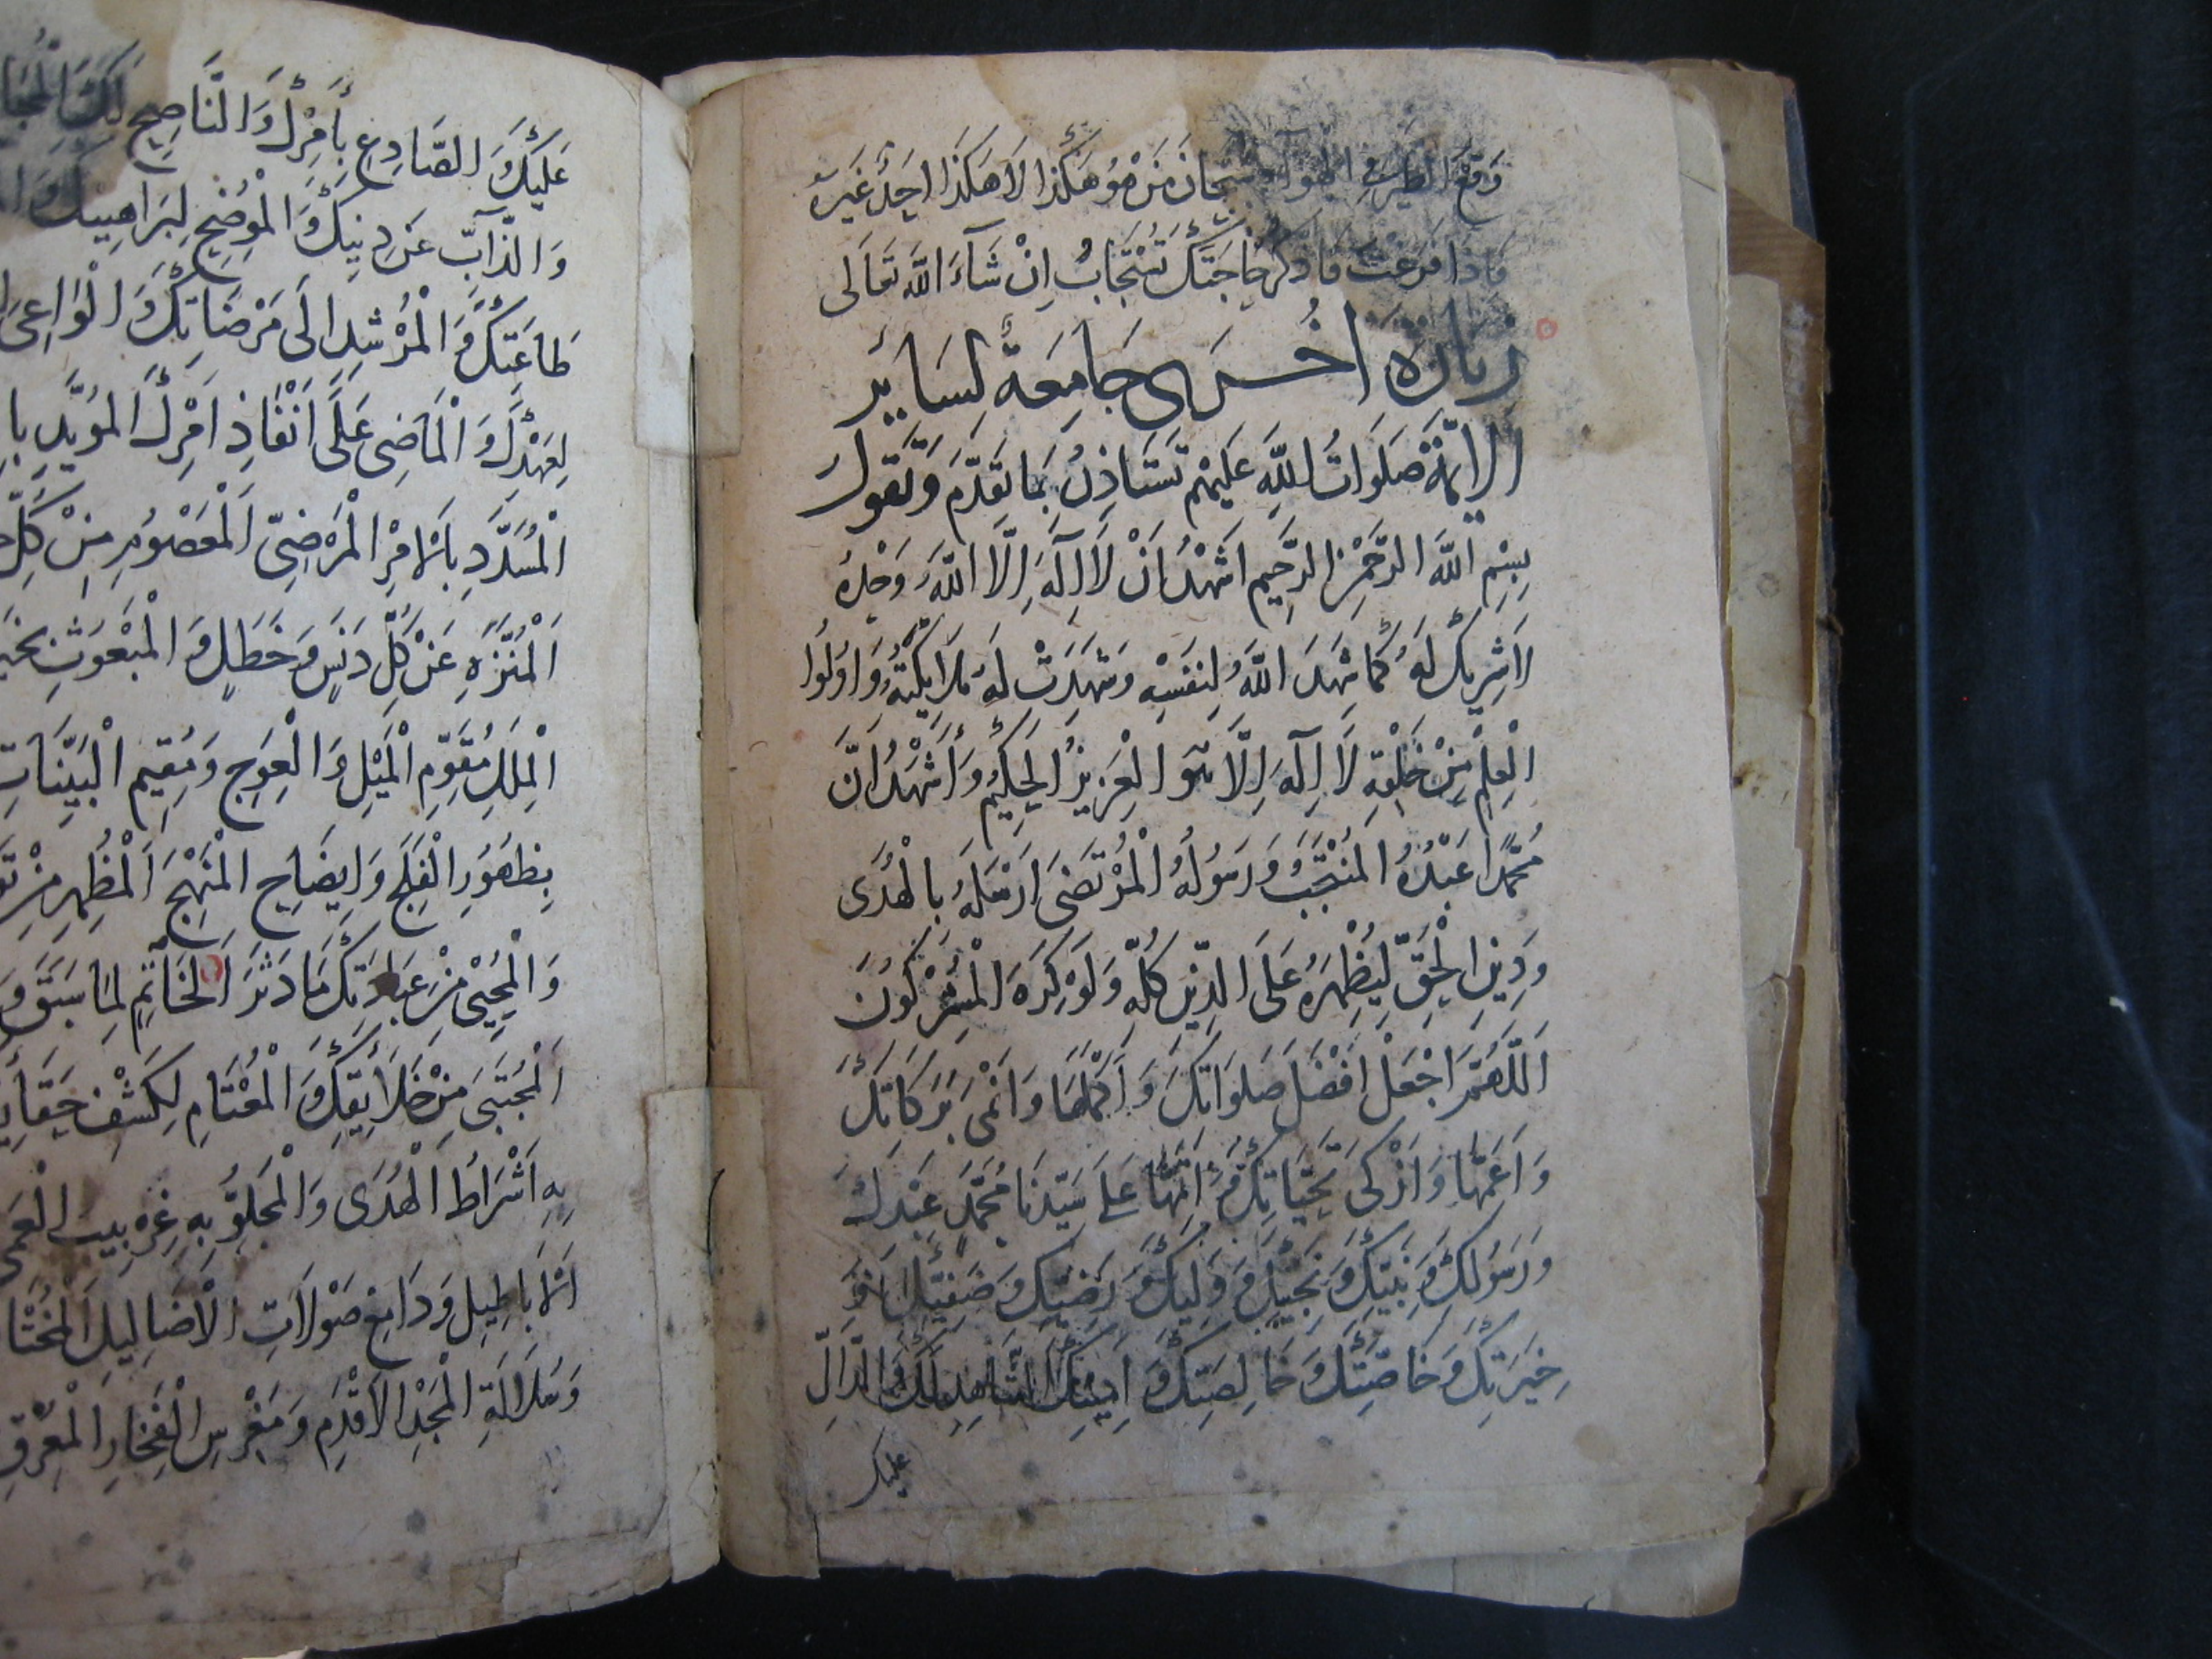 وَقَعَ الطير في الهوآء سُبْحَانَ مَنْ هُوَ هَكَذَا لَا هَكَذَا اَحَدٌ غَيْرُهُ
فَاِذَا فَرَغْتَ فَاذْكُرْ حَاجَتَكَ تُسْتَجَابُ اِنْ شَآءَ اللّٰهُ تَعَالَى
زيارة اُخْرى جَامِعَةٌ لِسَايِرِ
الايمّة صَلَوَاتُ اللهِ عَلَيْهِم تَسْتَاذِنُ بِمَا تَقَدَّمَ وَتَقُولُ
بِسْمِ اللّٰهِ الرَّحْمٰنِ الرَّحِيمِ اَشْهَدُ اَنْ لَا اِلٰهَ اِلَّا اللّٰهُ وَحْدَهُ
لَا شَرِيكَ لَهُ كَمَا شَهِدَ اللّٰهُ لِنَفْسِهِ وَشَهِدَتْ لَهُ مَلَايِكَتُهُ وَاُولُوا
الْعِلْمِ مِنْ خَلْقِهِ لَا اِلٰهَ اِلَّا هُوَ الْعَزِيزُ الْحَكِيمُ وَأَشْهَدُ اَنَّ
مُحَمَّدًا عَبْدُهُ الْمُنْتَجَبُ وَرَسُولُهُ الْمُرْتَضَى اَرْسَلَهُ بِالْهُدَى
وَدِينِ الْحَقِّ لِيُظْهِرَهُ عَلَى الدِّينِ كُلِّهِ وَلَوْ كَرِهَ الْمُشْرِكُونَ
اَللّٰهُمَّ اجْعَلْ اَفْضَلَ صَلَوَاتِكَ وَاَكْمَلَهَا وَاَنْمَى بَرَكَاتِكَ
وَاَعَمَّهَا وَاَزْكَى تَحِيَّاتِكَ وَاَتَمَّهَا عَلَى سَيِّدِنَا مُحَمَّدٍ عَبْدِكَ
وَرَسُولِكَ وَنَبِيِّكَ وَنَجِيِّكَ وَوَلِيِّكَ وَرَضِيِّكَ وَصَفِيِّكَ وَ
خِيَرَتِكَ وَخَاصَّتِكَ وَخَالِصَتِكَ وَاَمِينِكَ الشَّاهِدِ لَكَ وَالدَّالِّ
عليك
عَلَيْكَ وَالصَّادِعِ بِأَمْرِكَ وَالنَّاصِحِ لَكَ
وَالذَّآبِّ عَنْ دِينِكَ وَالْمُوضِحِ لِبَرَاهِينِكَ
طَاعَتِكَ وَالْمُرْشِدِ اِلَى مَرْضَاتِكَ وَالْوَاعِى
لِعَهْدِكَ وَالْمَاضِى عَلَى اَنْفَاذِ اَمْرِكَ الْمُؤَيَّدِ
الْمُسَدَّدِ بِالْاَمْرِ الْمَرْضِيِّ اَلْمَعْصُومِ مِنْ كُلِّ
اَلْمُنَزَّهِ عَنْ كُلِّ دَنَسٍ وَخَطَلٍ وَالْمَبْعُوثِ
الْمِلَلِ مُقَوِّمِ الْمَيْلِ وَالْعِوَجِ وَمُقِيمِ الْبَيِّنَاتِ
بِظُهُورِ الْفَلَجِ وَاِيضَاحِ الْمَنْهَجِ اَلْمُظْهِرِ مِنْ
وَالْمُحْيِي مِنْ عِبَادَتِكَ مَا دَثَرَ اَلْخَاتِمِ لِمَا سَبَقَ
اَلْمُجْتَبَى مِنْ خَلَايِقِكَ وَالْمُعْتَامِ لِكَشْفِ
بِهِ اَشْرَاطُ الْهُدَى وَالْمَجْلُوِّ بِهِ غِرْبِيبُ الْعَمَى
اَلْاَبَاطِيلِ وَدَامِغِ صَوْلَاتِ الْاَضَالِيلِ
وَسُلَالَةِ الْمَجْدِ الْاَقْدَمِ وَمَغْرِسِ الْفَخَارِ